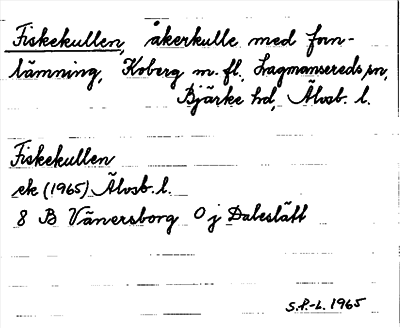 Fiskekullen, åkerkulle med forn-
lämning, Koberg m. fl., Lagmansereds sn,
Bjärke hd, Älvsb. l.
Fiskekullen
ek (1965) Älvsb. l.
8 B Vänersborg 0 j Dalslätt
S.P.-L. 1965